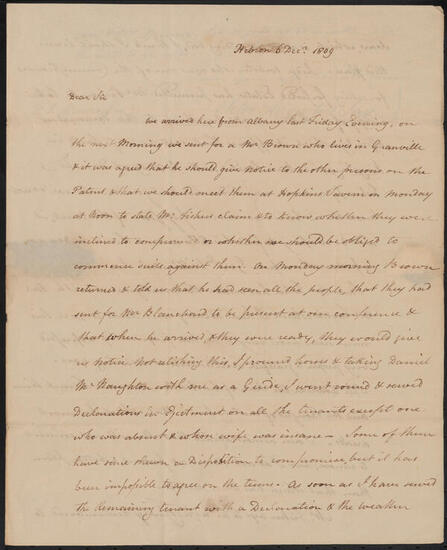 Hebron 6 Decr. 1809
Dear Sir
we arrived here from Albany last Friday Evening, on
the next Morning we sent for a Mr Brown who lives in Granville
& it was agreed that he should give notice to the other persons on the
Patent & that we should meet them at Hopkins Tavern on Monday
at Noon to state Mr. Fishers claim & to know whether they were
inclined to compromise or whether we should be obliged to
commence suits against them. On Monday morning Brown
returned & told us that he had seen all the people, that they had
sent for Mr Blanchard to be present at our conference &
that when he arrived & they were ready, they would give
us notice. Not relishing this, I procured horses & taking Daniel
McNaughton with me as a Guide, I went round & served
Declarations in Ejectment on all the tenants except one
who was absent & whose wife was insane – Some of them
have since shewn a Disposition to compromise, but it has
been impossible to agree on the terms. As soon as I have served
the remaining tenant with a Declaration & the weather